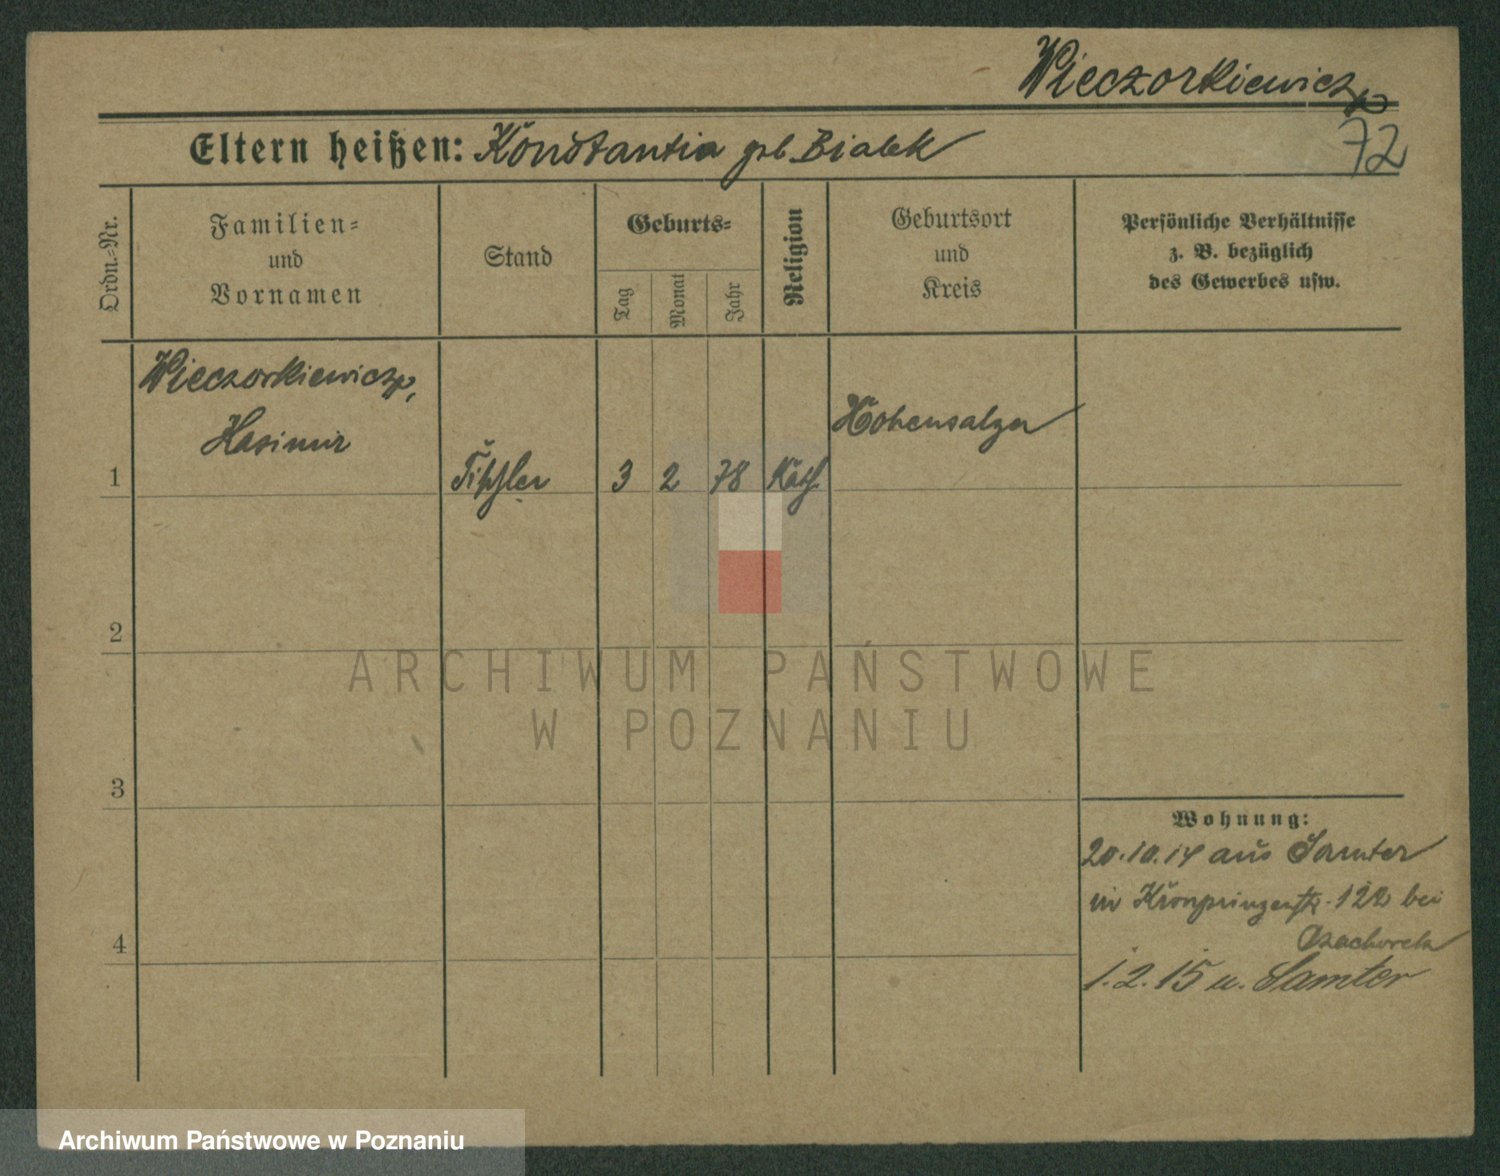 Wieczorkiewicz
72
Eltern heißen: Konstantia geb. Bialek
Ordn.-Nr.
Familien-
und
Vornamen
Stand
Geburts-
Tag
Monat
Jahr
Religion
Geburtsort
und
Kreis
Persönliche Verhältnisse
z. B. bezüglich
des Gewerbes usw.
Wieczorkiewicz,
Kasimir
1 Tischler 3 2 78 Kath Hohensalza
2
3
4
Wohnung:
20.10.14 aus Samter
in Kronprinzenstr. 122 bei
1.2.15 n. Samter
ARCHIWUM PAŃSTWOWE
W POZNANIU
Archiwum Państwowe w Poznaniu